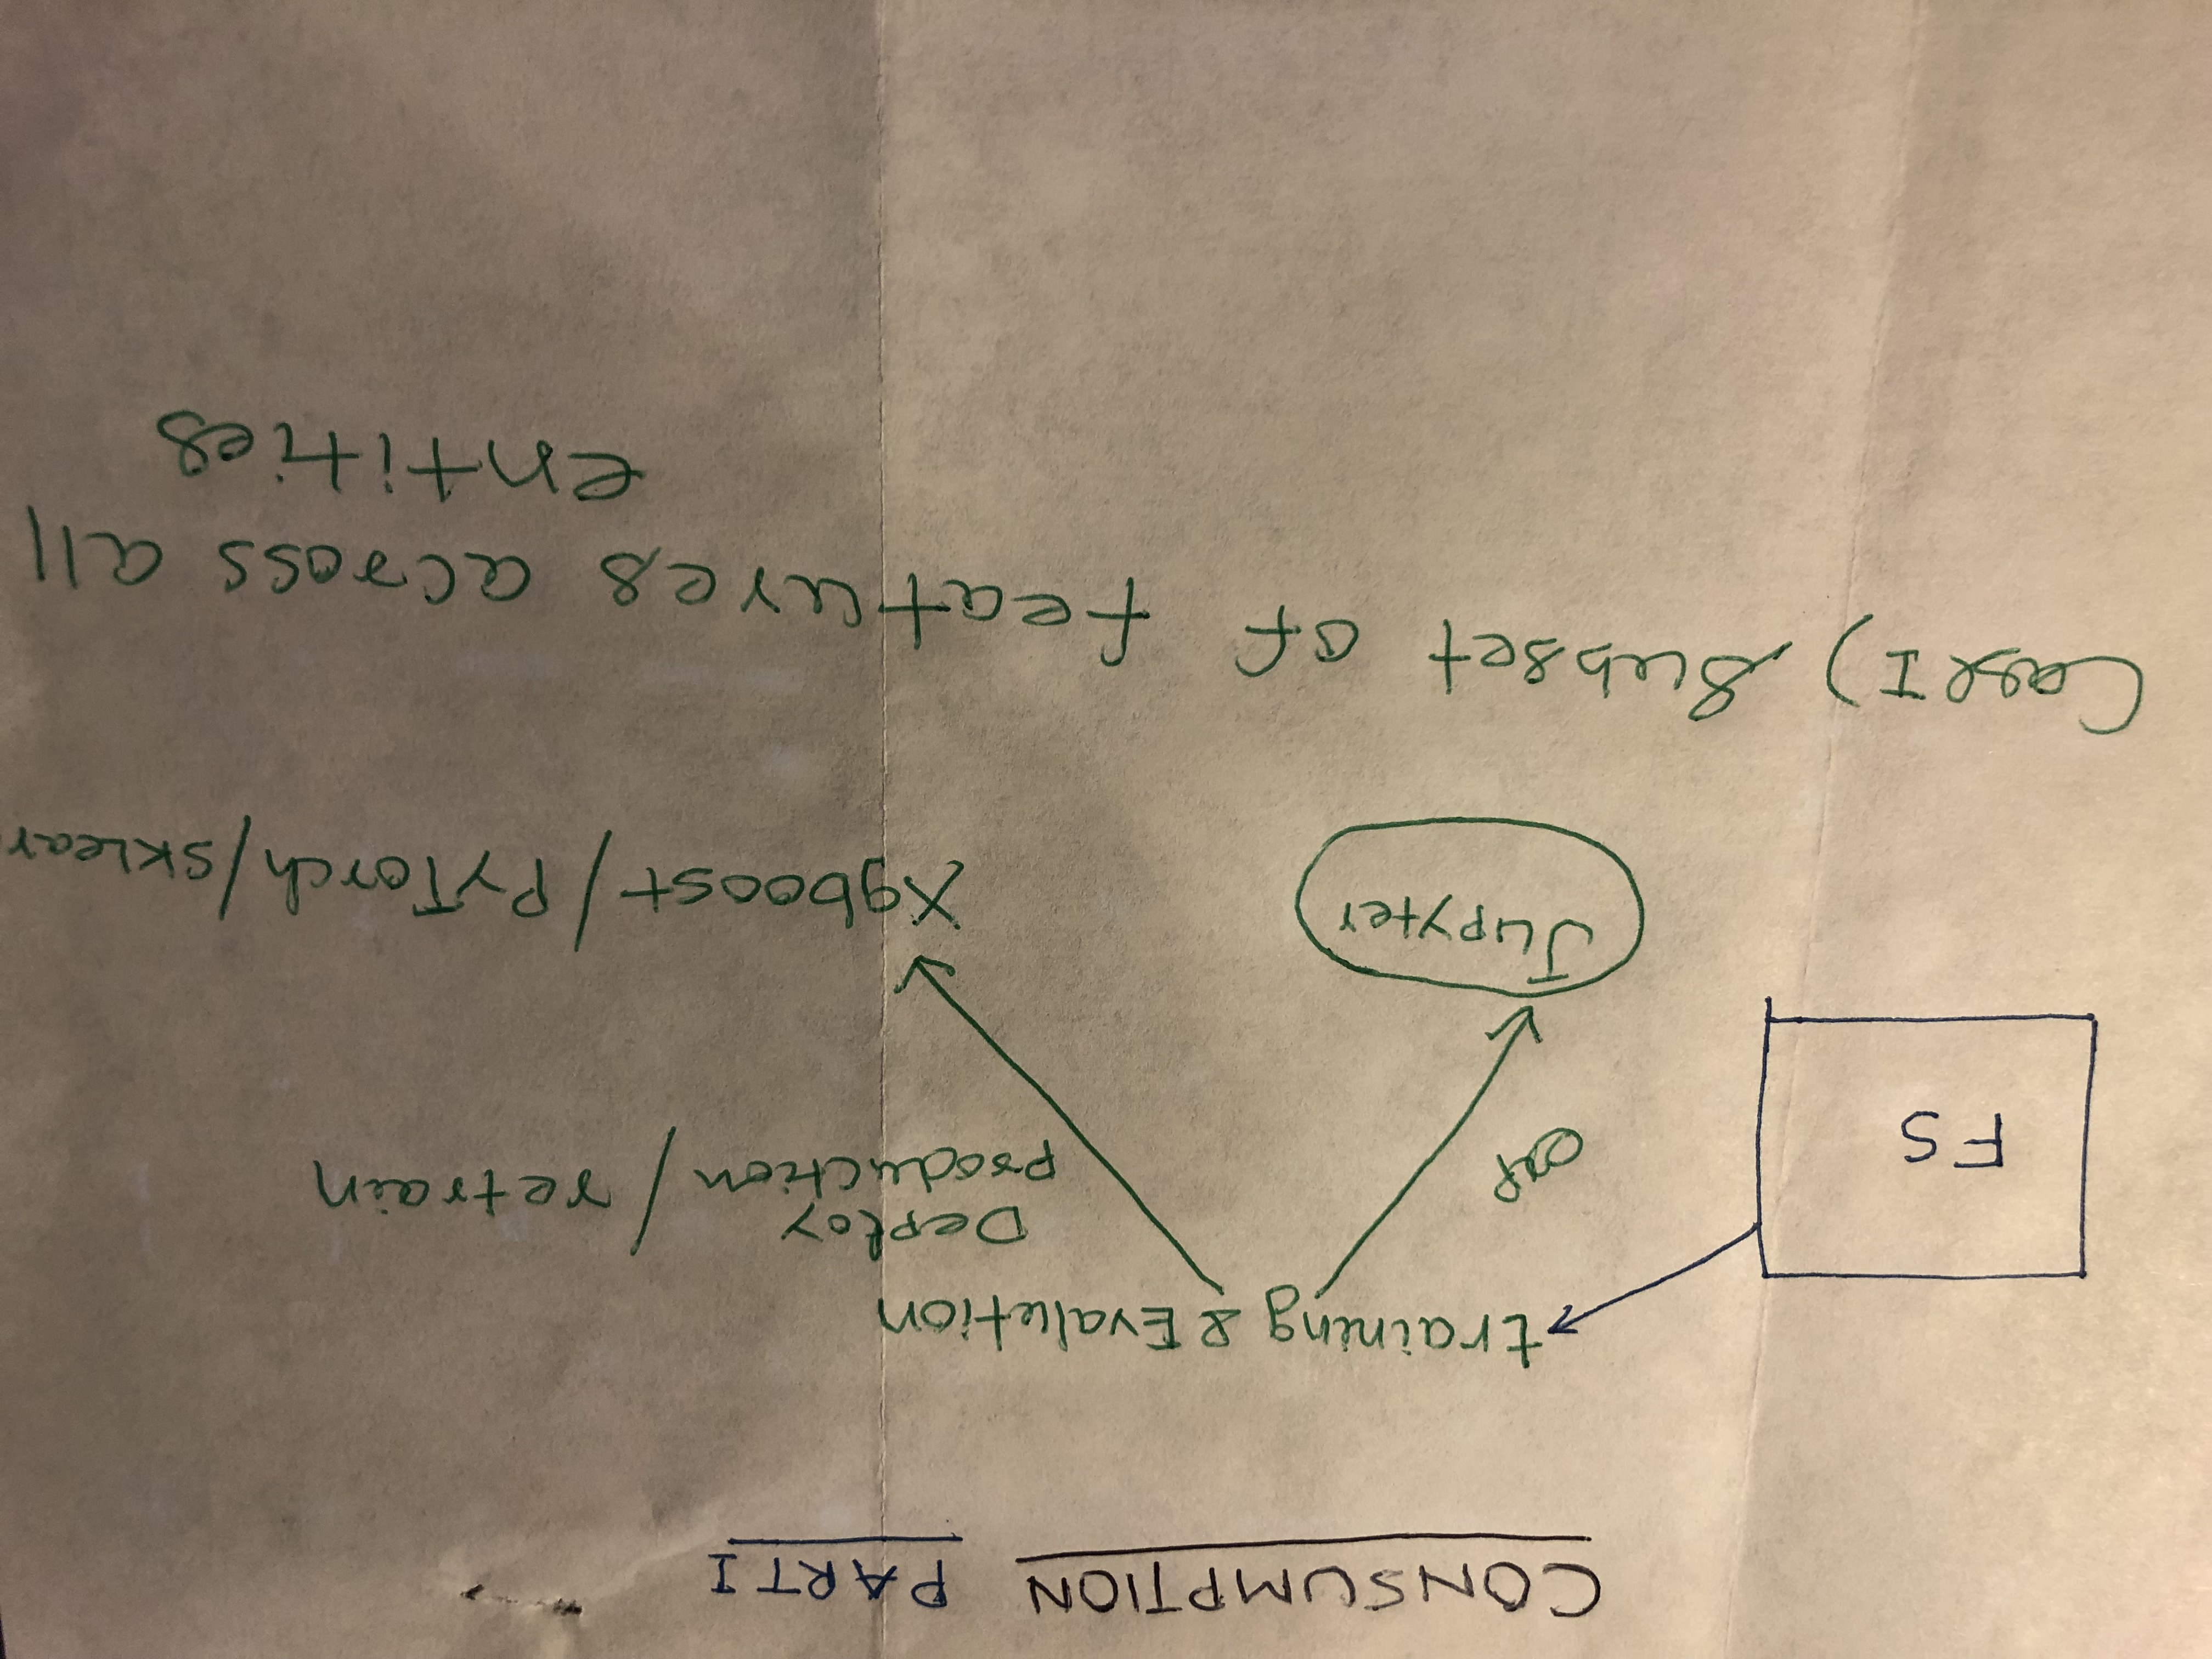 CONSUMPTION PART I
training & Evalution
Deploy
production / retrain
FS
Jupyter
Xgboost / PyTorch / SKLear
Case I) Subset of features across all
entities